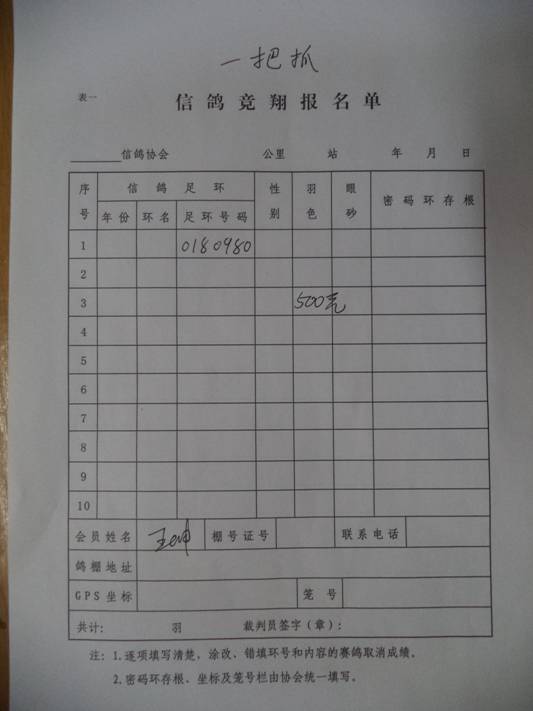 一把抓
表一
信鸽竞翔报名单
信鸽协会 公里 站 年 月 日
序号 信鸽足环 性别 羽色 眼砂 密码环存根
年份 环名 足环号码
1 0180980
2
3 500元
4
5
6
7
8
9
10
会员姓名 王坤 棚号证号 联系电话
鸽棚地址
GPS坐标 笼号
共计: 羽 裁判员签字(章):
注: 1.逐项填写清楚、涂改、错填环号和内容的赛鸽取消成绩。
2.密码环存根、坐标及笼号栏由协会统一填写。